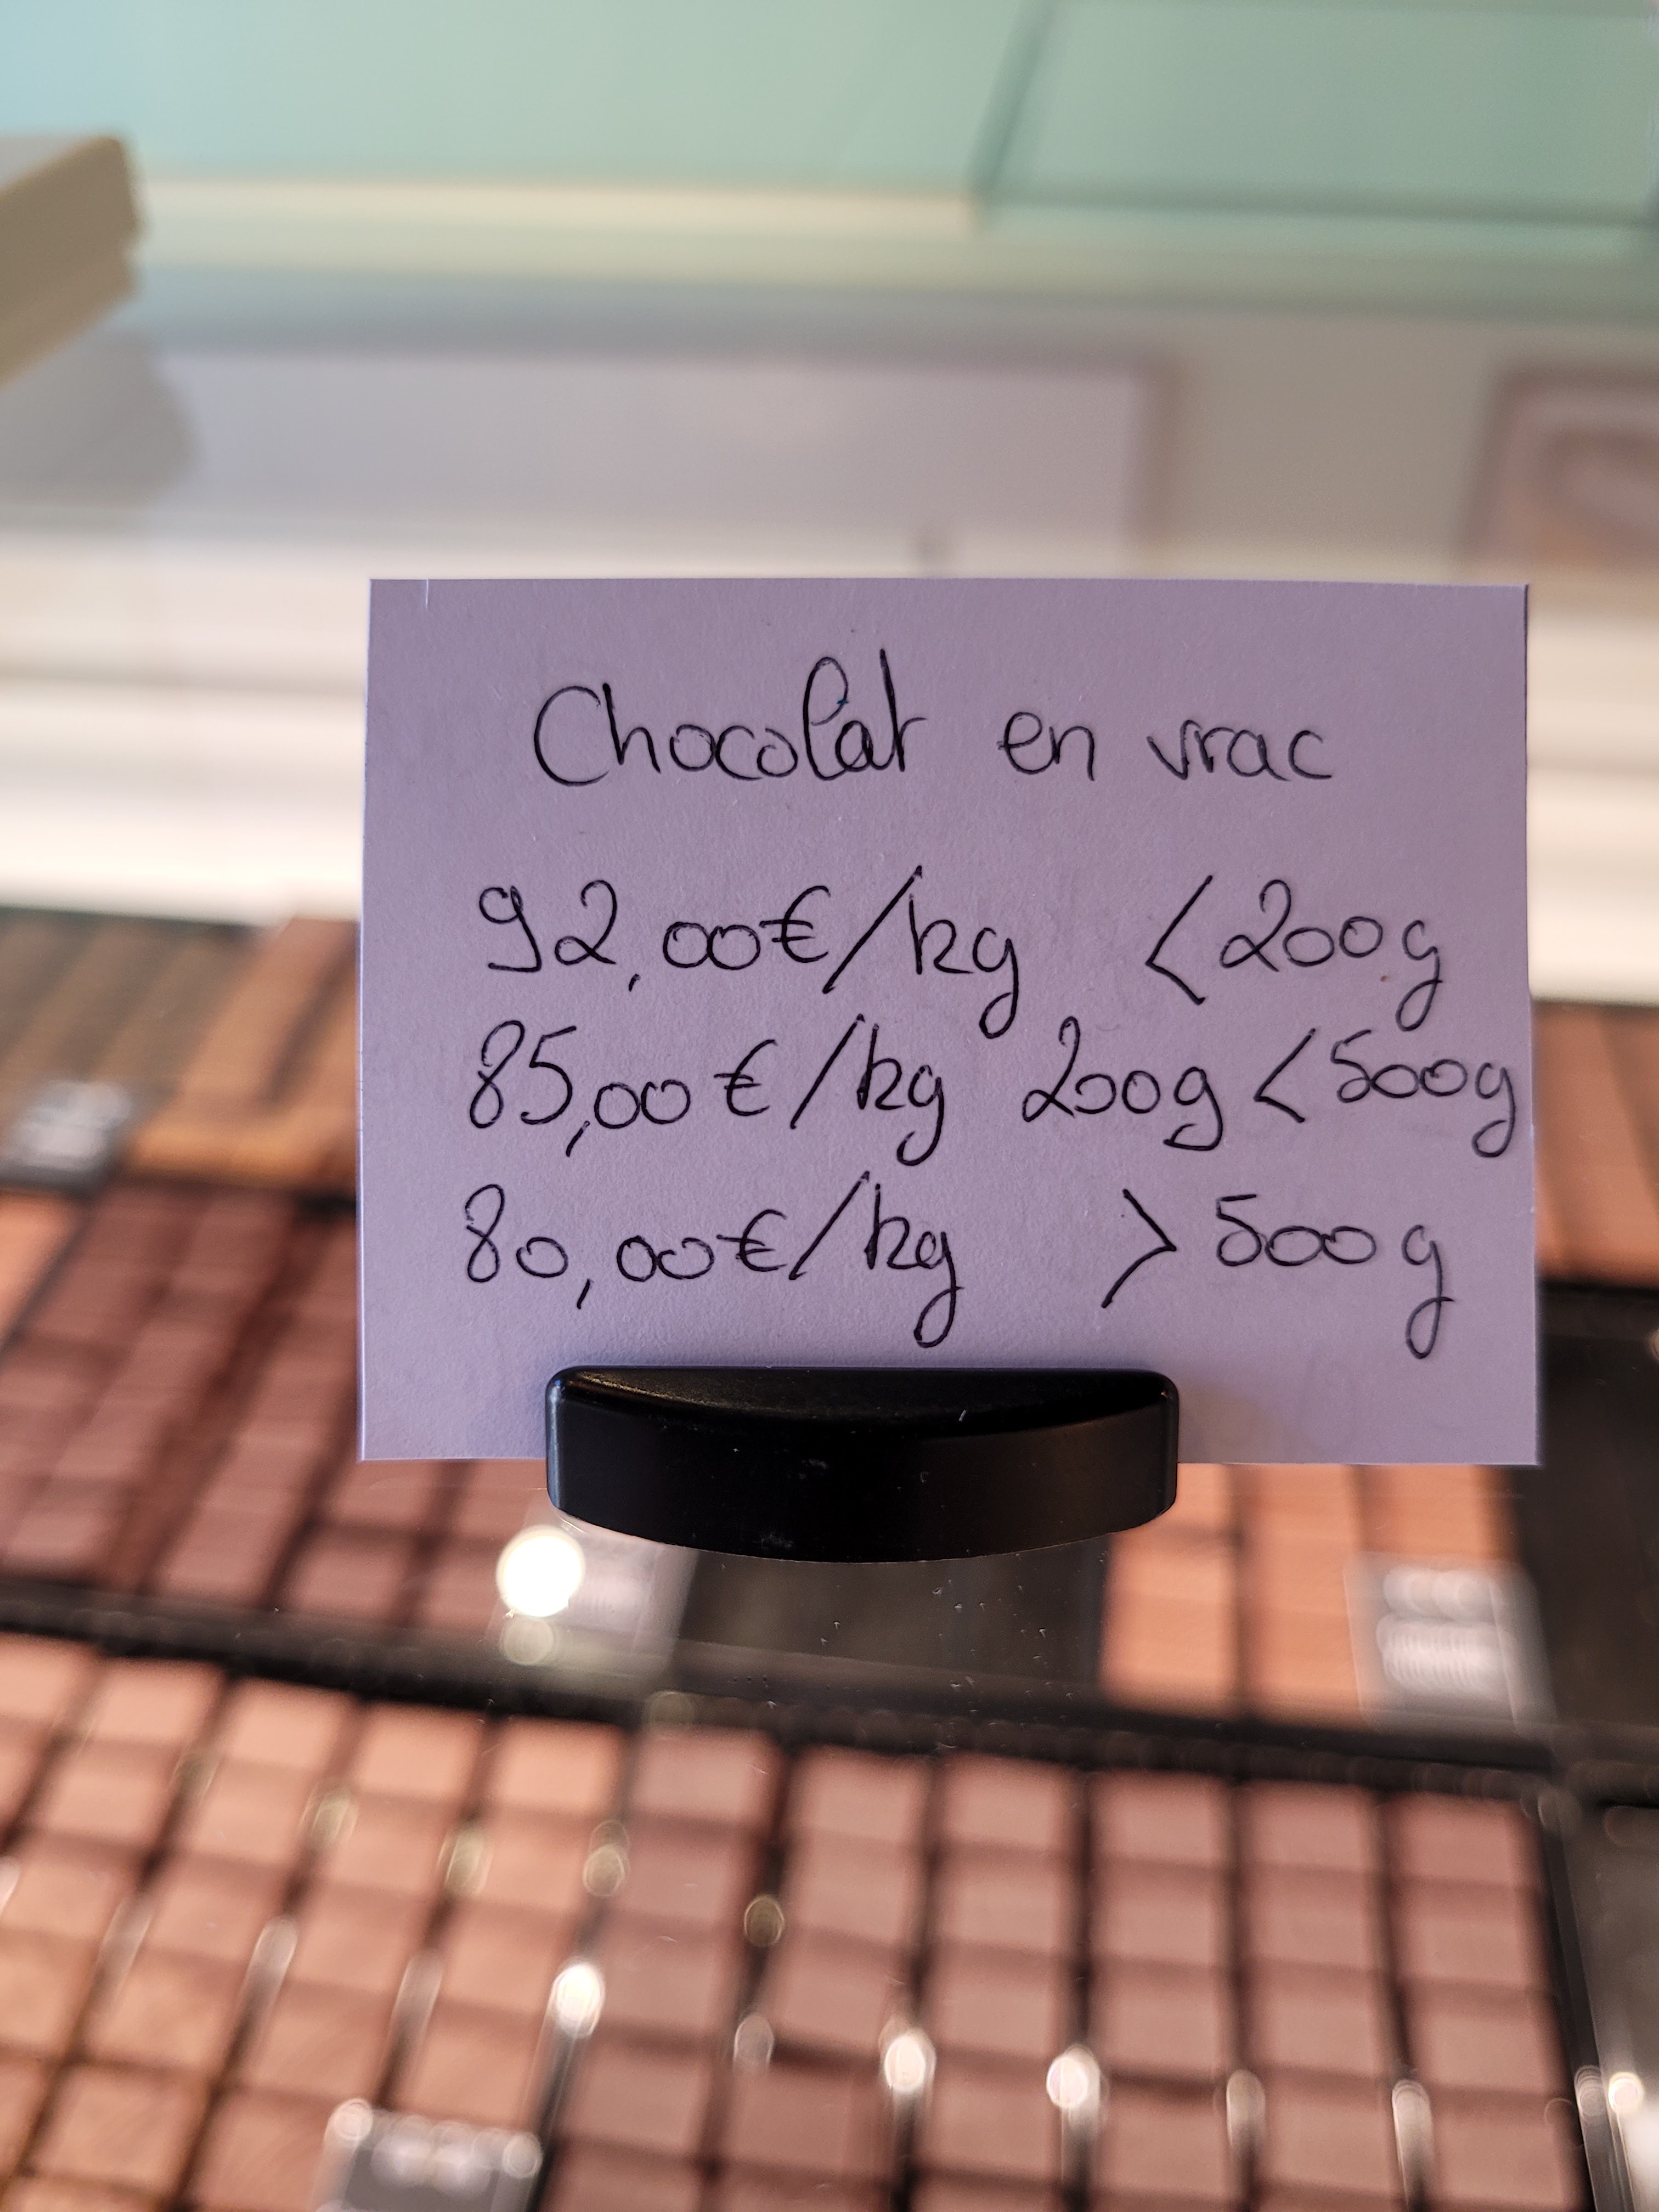 Chocolat en vrac
92,00€/kg <200g
85,00€/kg 200g<500g
80,00€/kg >500g